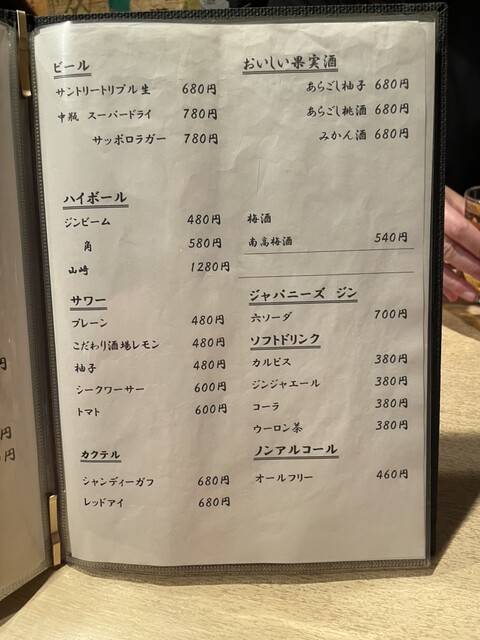 ビール
サントリートリプル生 680円
中瓶 スーパードライ 780円
サッポロラガー 780円
ハイボール
ジンビーム 480円
角 580円
山崎 1280円
サワー
プレーン 480円
こだわり酒場レモン 480円
柚子 480円
シークワーサー 600円
トマト 600円
カクテル
シャンディーガフ 680円
レッドアイ 680円
おいしい果実酒
あらごし柚子 680円
あらごし桃酒 680円
みかん酒 680円
梅酒
南高梅酒 540円
ジャパニーズ ジン
六ソーダ 700円
ソフトドリンク
カルピス 380円
ジンジャエール 380円
コーラ 380円
ウーロン茶 380円
ノンアルコール
オールフリー 460円
円
円
円